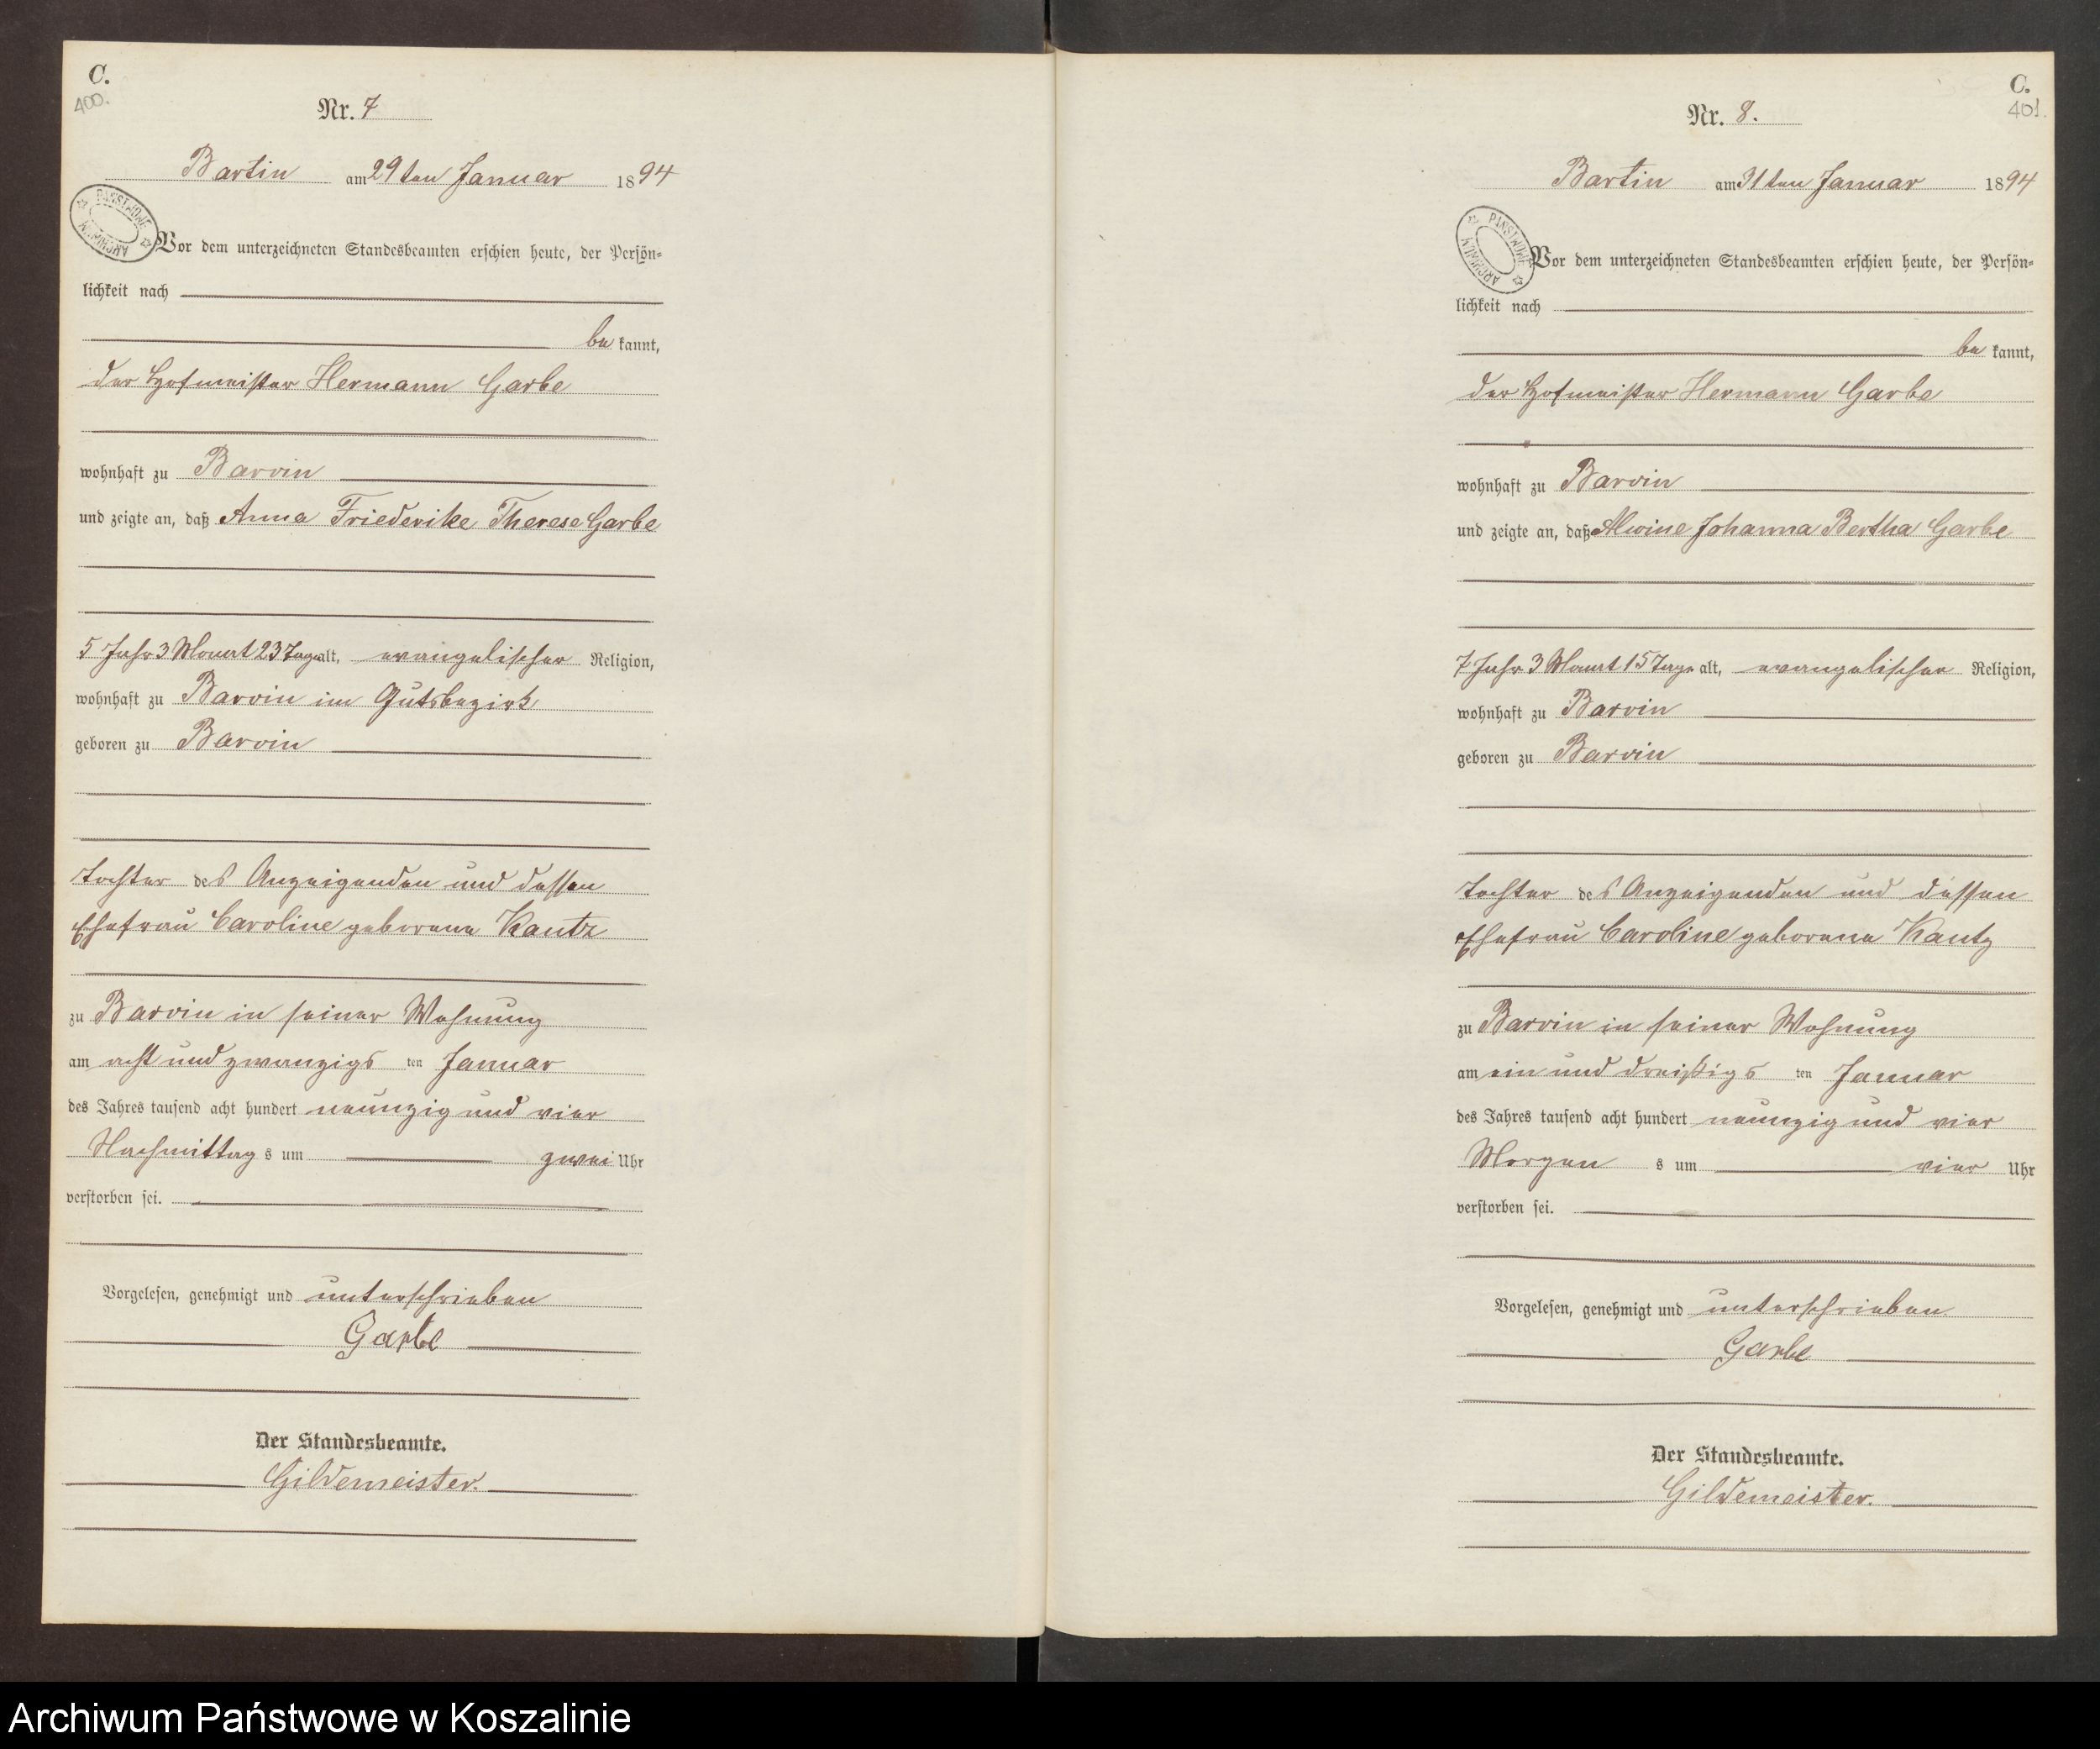 C.
400.
Nr. 7
Bartin am 29ten Januar 1894
PAŃSTWOWE ARCHIWUM
Vor dem unterzeichneten Standesbeamten erschien heute, der Persön-
lichkeit nach
be kannt,
der Hofmeister Hermann Garbe
wohnhaft zu Barvin
und zeigte an, daß Anna Friederike Therese Garbe
5 Jahr 3 Monat 23 Tage alt, evangelischer Religion,
wohnhaft zu Barvin im Gutsbezirk
geboren zu Barvin
Tochter des Anzeigenden und dessen
Ehefrau Caroline geborene Kautz
zu Barvin in seiner Wohnung
am acht und zwanzigs ten Januar
des Jahres tausend acht hundert neunzig und vier
Nachmittag s um zwei Uhr
verstorben sei.
Vorgelesen, genehmigt und unterschrieben
Garbe
Der Standesbeamte.
Gildemeister.
C.
401.
Nr. 8.
Bartin am 31ten Januar 1894
PAŃSTWOWE ARCHIWUM
Vor dem unterzeichneten Standesbeamten erschien heute, der Persön-
lichkeit nach
be kannt,
der Hofmeister Hermann Garbe
wohnhaft zu Barvin
und zeigte an, daß Alwine Johanna Bertha Garbe
7 Jahr 3 Monat 15 Tage alt, evangelischer Religion,
wohnhaft zu Barvin
geboren zu Barvin
Tochter des Anzeigenden und dessen
Ehefrau Caroline geborene Kautz
zu Barvin in seiner Wohnung
am ein und dreißigs ten Januar
des Jahres tausend acht hundert neunzig und vier
Morgen s um vier Uhr
verstorben sei.
Vorgelesen, genehmigt und unterschrieben
Garbe
Der Standesbeamte.
Gildemeister.
Archiwum Państwowe w Koszalinie